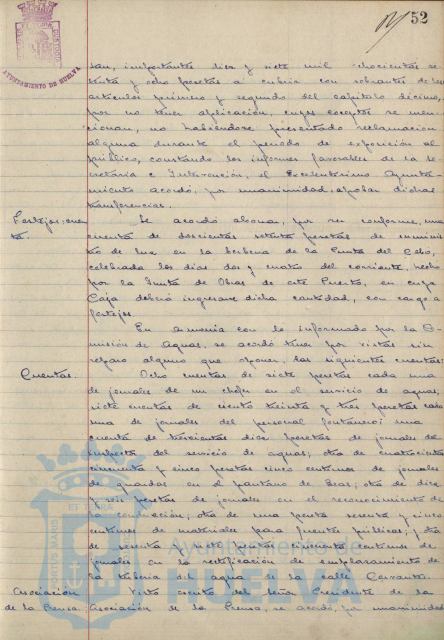 52
AYUNTAMIENTO DE HUELVA
san, importantes diez y siete mil ochocientas se
tenta y ocho pesetas a cubrir con sobrantes de los
artículos primero y segundo del capítulo décimo,
por no tener aplicación, cuyos conceptos se men
cionan, no habiéndose presentado reclamación
alguna durante el periodo de exposición al
público, constando los informes favorables de la Se
cretaría e Intervención, el Excelentísimo Ayunta
miento acordó, por unanimidad, aprobar dichas
transferencias.
Festejos: cuen
ta.
Se acordó abonar, por ser conforme, una
cuenta de doscientas setenta pesetas de suminis
tro de luz en la berbena de la Punta del Sebo,
celebrada los días dos y cuatro del corriente, hecho
por la Junta de Obras de este Puerto, en cuya
Caja deberá ingresarse dicha cantidad, con cargo a
festejos.
En armonía con lo informado por la Co
misión de Aguas, se acordó tener por vistas sin
reparo alguno que oponer, las siguientes cuentas:
Cuentas.
Ocho cuentas de siete pesetas cada una
de jornales de un chófer en el servicio de aguas;
siete cuentas de ciento treinta y tres pesetas cada
una de jornales del personal fontanero; una
cuenta de trescientas diez pesetas de jornales de
del servicio de aguas; otra de cuatrocientas
cincuenta y cinco pesetas cinco centimos de jornales
de guardas en el pantano de Beas; otra de diez
y seis pesetas de jornales en el reconocimiento de
la conducción; otra de una peseta sesenta y cinco
centimos de materiales para fuentes públicas; otra
de sesenta y siete pesetas cincuenta centimos de
jornales en la rectificación de emplazamiento de
la tubería del agua de la calle Cervantes.
Asociación
de la Prensa.
Visto escrito del señor Presidente de la
Asociación de la Prensa, se acordó, por unanimidad
Ayuntamiento de
HUELVA